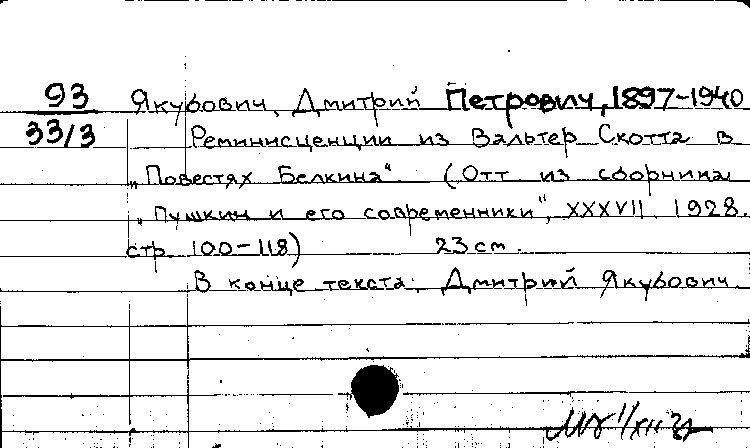 93 Якубович, Дмитрий Петрович, 1897-1940
33/3 Реминисценции из Вальтер Скотта в
„Повестях Белкина“ (Отт. из сборника
„Пушкин и его современники“, XXXVII. 1928.
стр. 100-118) 23 cm.
В конце текста: Дмитрий Якубович.